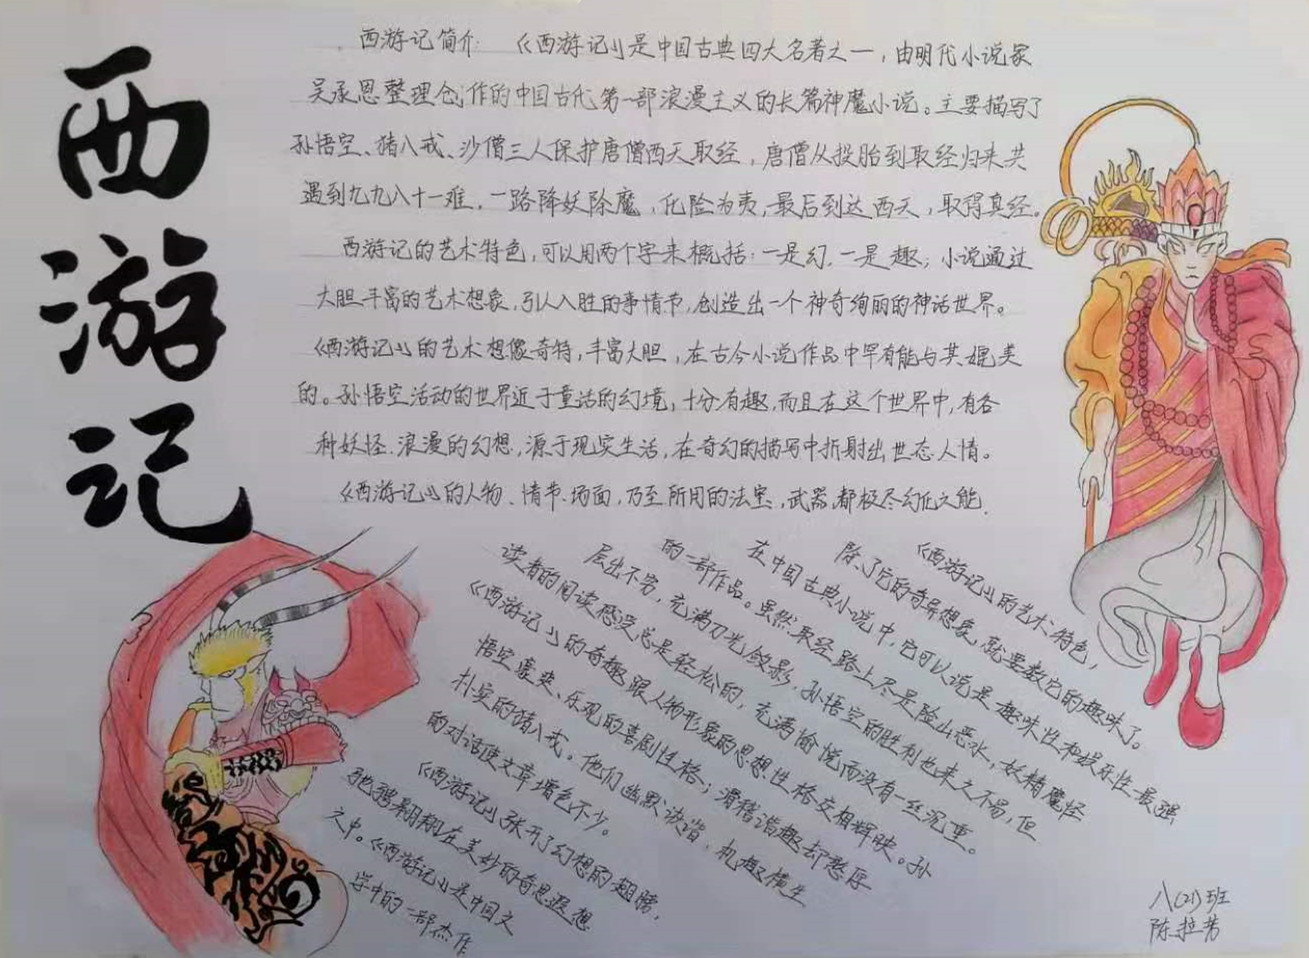 西游记
西游记简介:《西游记》是中国古典四大名著之一,由明代小说家
吴承恩整理创作的中国古代第一部浪漫主义的长篇神魔小说。主要描写了
孙悟空、猪八戒、沙僧三人保护唐僧西天取经,唐僧从投胎到取经归来共
遇到九九八十一难,一路降妖除魔,化险为夷,最后到达西天,取得真经。
西游记的艺术特色,可以用两个字来概括:一是幻,一是趣;小说通过
大胆丰富的艺术想象,引人入胜的事情节,创造出一个神奇绚丽的神话世界。
《西游记》的艺术想像奇特,丰富大胆,在古今小说作品中罕有能与其媲美
的。孙悟空活动的世界近于童话的幻境,十分有趣,而且在这个世界中,有各
种妖怪.浪漫的幻想,源于现实生活,在奇幻的描写中折射出世态人情。
《西游记》的人物、情节、场面,乃至所用的法宝,武器都极尽幻化之能.
《西游记》的艺术特色,
除了它的奇异想象,就要数它的趣味了。
在中国古典小说中,它可以说是趣味性和娱乐性最强
的一部作品。虽然取经路上尽是险山恶水,妖精魔怪
层出不穷,充满刀光剑影,孙悟空的胜利也来之不易,但
读者的阅读感受总是轻松的,充满愉悦而没有一丝沉重。
《西游记》的奇趣跟人物形象的思想性格交相辉映。孙
悟空豪爽、乐观的喜剧性格;滑稽谐趣却憨厚
朴实的猪八戒。他们幽默诙谐,机趣横生
的对话使文章增色不少。
《西游记》张开了幻想的翅膀,
驰骋翱翔在美妙的奇思遐想
之中。《西游记》是中国文
学中的一部杰作
八(21)班
陈拉芳